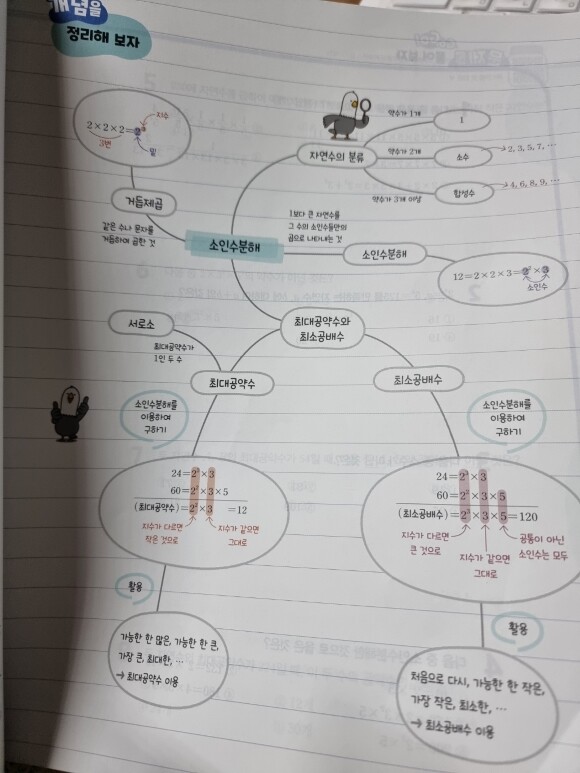 개념을
정리해 보자
2×2×2=2³
지수
3번
밑
거듭제곱
같은 수나 문자를
거듭하여 곱한 것
소인수분해
자연수의 분류
약수가 1개
1
약수가 2개
소수
2, 3, 5, 7, ···
약수가 3개 이상
합성수
4, 6, 8, 9, ···
1보다 큰 자연수를
그 수의 소인수들만의
곱으로 나타내는 것
소인수분해
12=2×2×3=2²×3
소인수
최대공약수와
최소공배수
서로소
최대공약수가
1인 두 수
최대공약수
최소공배수
소인수분해를
이용하여
구하기
24=2³×3
60=2²×3×5
(최대공약수)=2²×3 =12
지수가 다르면
작은 것으로
지수가 같으면
그대로
활용
가능한 한 많은, 가능한 한 큰,
가장 큰, 최대한, ···
→ 최대공약수 이용
소인수분해를
이용하여
구하기
24=2³×3
60=2²×3×5
(최소공배수)=2³×3×5=120
지수가 다르면
큰 것으로
지수가 같으면
그대로
공통이 아닌
소인수는 모두
활용
처음으로 다시, 가능한 한 작은,
가장 작은, 최소한, ···
→ 최소공배수 이용